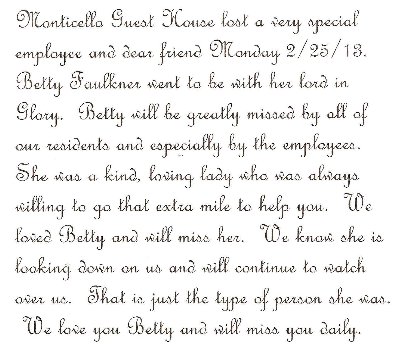 Monticello Guest House lost a very special
employee and dear friend Monday 2/25/13.
Betty Faulkner went to be with her lord in
Glory. Betty will be greatly missed by all of
our residents and especially by the employees.
She was a kind, loving lady who was always
willing to go that extra mile to help you. We
loved Betty and will miss her. We know she is
looking down on us and will continue to watch
over us. That is just the type of person she was.
We love you Betty and will miss you daily.